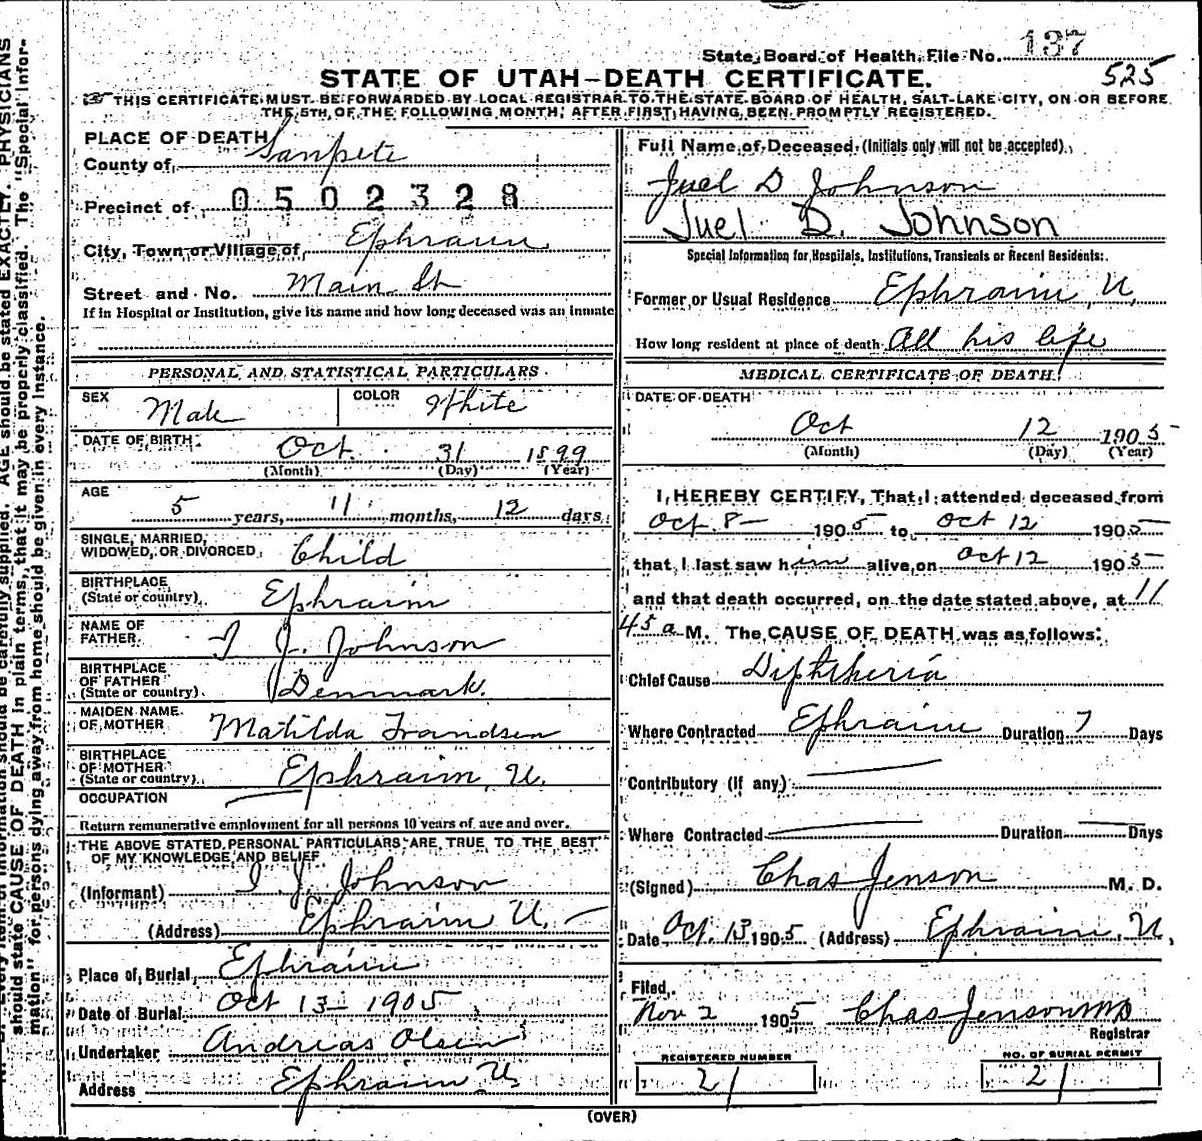 State Board of Health File No. 137
525
STATE OF UTAH—DEATH CERTIFICATE.
THIS CERTIFICATE MUST BE FORWARDED BY LOCAL REGISTRAR TO THE STATE BOARD OF HEALTH, SALT LAKE CITY, ON OR BEFORE
THE 5TH OF THE FOLLOWING MONTH, AFTER FIRST HAVING BEEN PROMPTLY REGISTERED.
PLACE OF DEATH
County of Sanpete
Precinct of 0502328
City, Town or Village of Ephraim
Street and No. Main St
If in Hospital or Institution, give its name and how long deceased was an inmate
PERSONAL AND STATISTICAL PARTICULARS
SEX Male COLOR White
DATE OF BIRTH Oct 31 1899
(Month) (Day) (Year)
AGE
5 years, 11 months, 12 days
SINGLE, MARRIED,
WIDOWED, OR DIVORCED Child
BIRTHPLACE
(State or country) Ephraim
NAME OF
FATHER J. Johnson
BIRTHPLACE
OF FATHER
(State or country) Denmark
MAIDEN NAME
OF MOTHER Matilda Frandsen
BIRTHPLACE
OF MOTHER
(State or country) Ephraim, U.
OCCUPATION
Return remunerative employment for all persons 10 years of age and over.
THE ABOVE STATED PERSONAL PARTICULARS ARE TRUE TO THE BEST
OF MY KNOWLEDGE AND BELIEF
(Informant) J. Johnson
(Address) Ephraim U.
Place of Burial Ephraim
Date of Burial Oct 13 - 1905
Undertaker Andreas Olsen
Address Ephraim U.
Full Name of Deceased (Initials only will not be accepted)
Juel D Johnson
Juel D. Johnson
Special Information for Hospitals, Institutions, Transients or Recent Residents:
Former or Usual Residence Ephraim, U.
How long resident at place of death All his life
MEDICAL CERTIFICATE OF DEATH
DATE OF DEATH
Oct 12 1905
(Month) (Day) (Year)
I HEREBY CERTIFY, That I attended deceased from
Oct. 8 - 1905 to Oct 12 1905
that I last saw him alive on Oct 12 1905
and that death occurred, on the date stated above, at 11
45 a M. The CAUSE OF DEATH was as follows:
Chief Cause Diphtheria
Where Contracted Ephraim Duration 7 Days
Contributory (if any)
Where Contracted Duration Days
(Signed) Chas Jenson M. D.
Date Oct. 13 1905 (Address) Ephraim, U.
Filed
Nov 2 1905 Chas Jenson MD
Registrar
REGISTERED NUMBER
21
NO. OF BURIAL PERMIT
21
(OVER)
should state CAUSE OF DEATH in plain terms, that it may be properly classified. The "Special Infor-
mation" for persons dying away from home should be given in every instance.